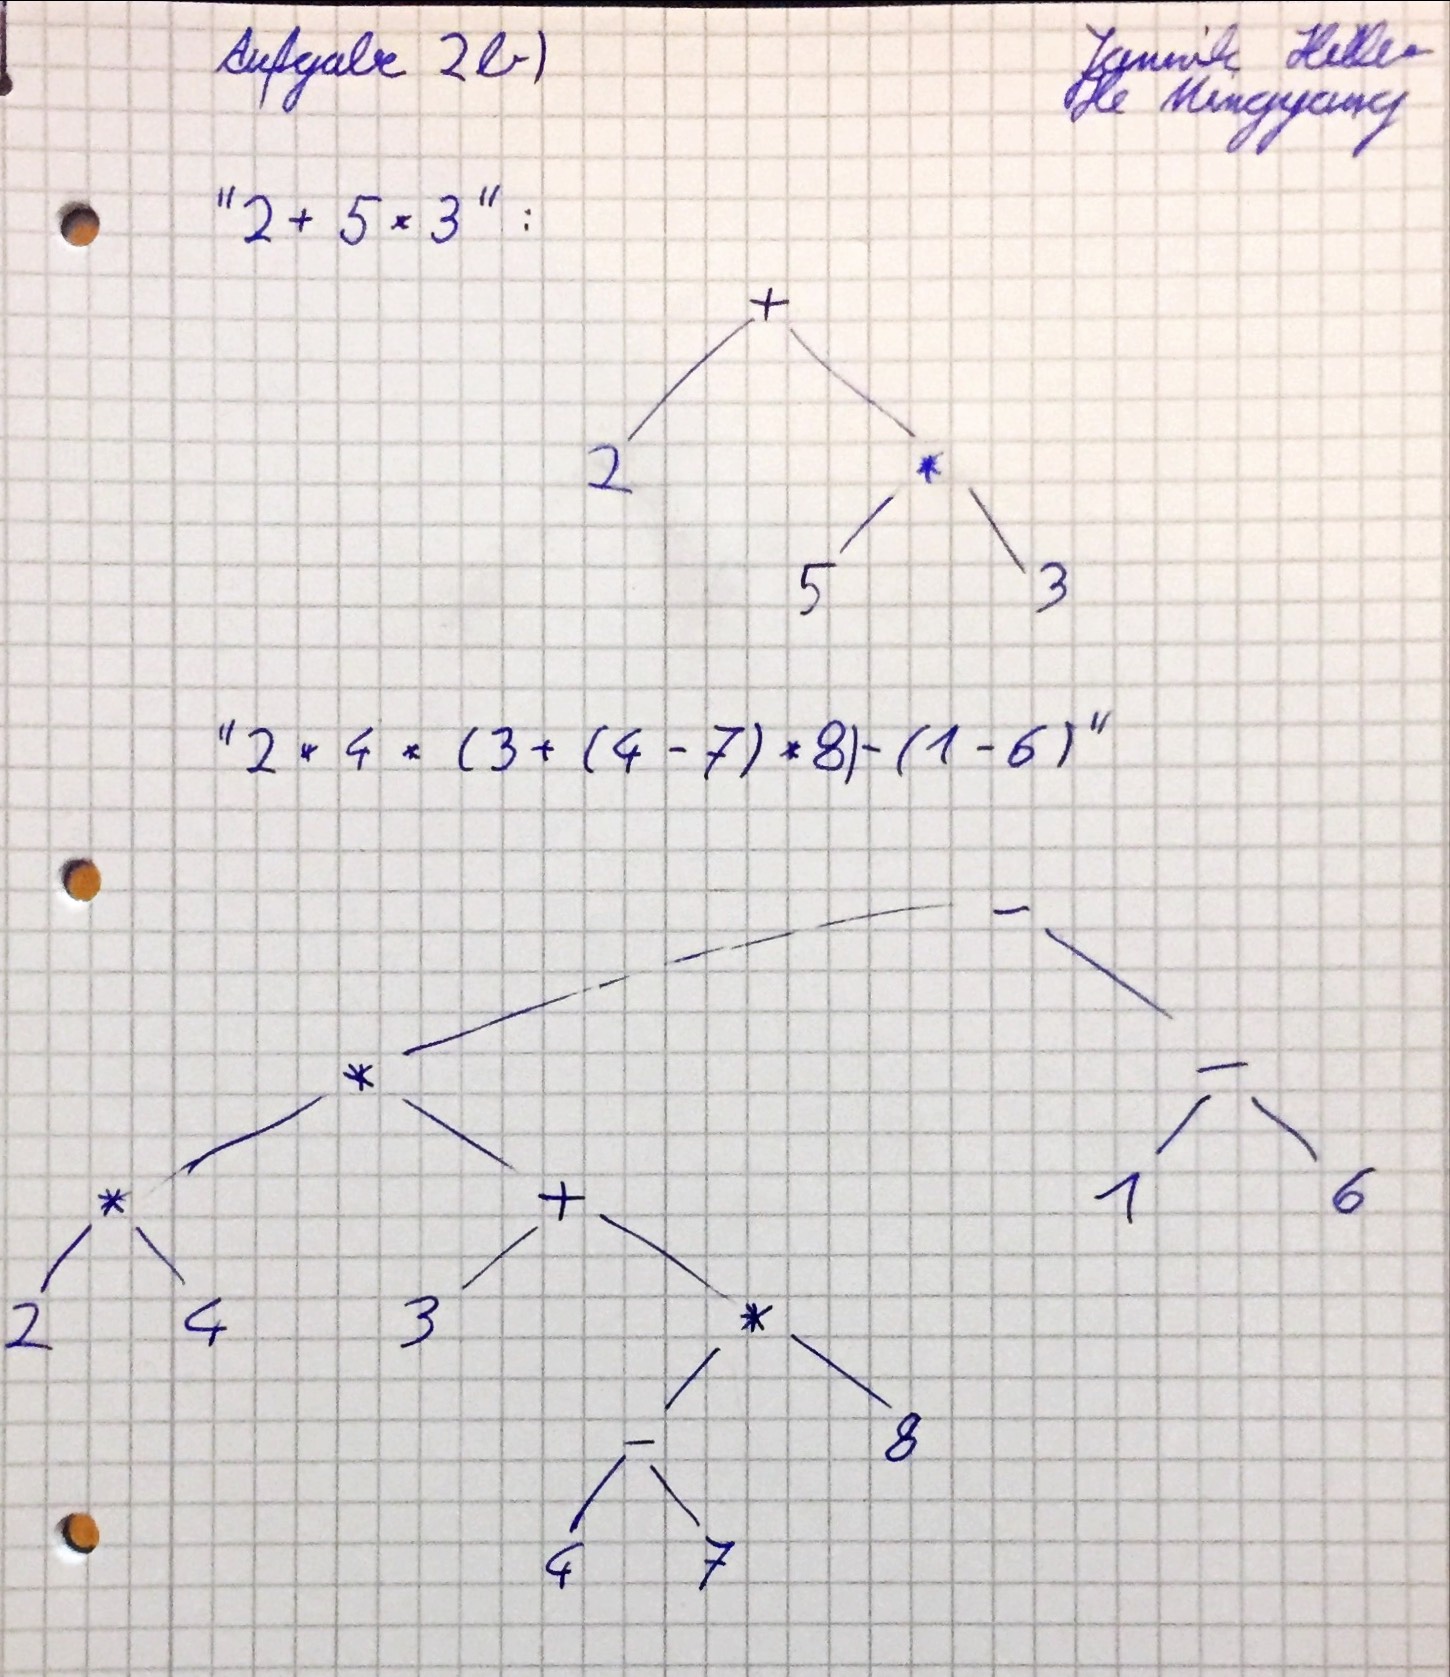 Aufgabe 2b)
Jannik
He Mingyang
"2 + 5 * 3":
+
2 *
5 3
"2 * 4 * (3 + (4 - 7) * 8) - (1 - 6)"
-
* -
* + 1 6
2 4 3 *
- 8
4 7